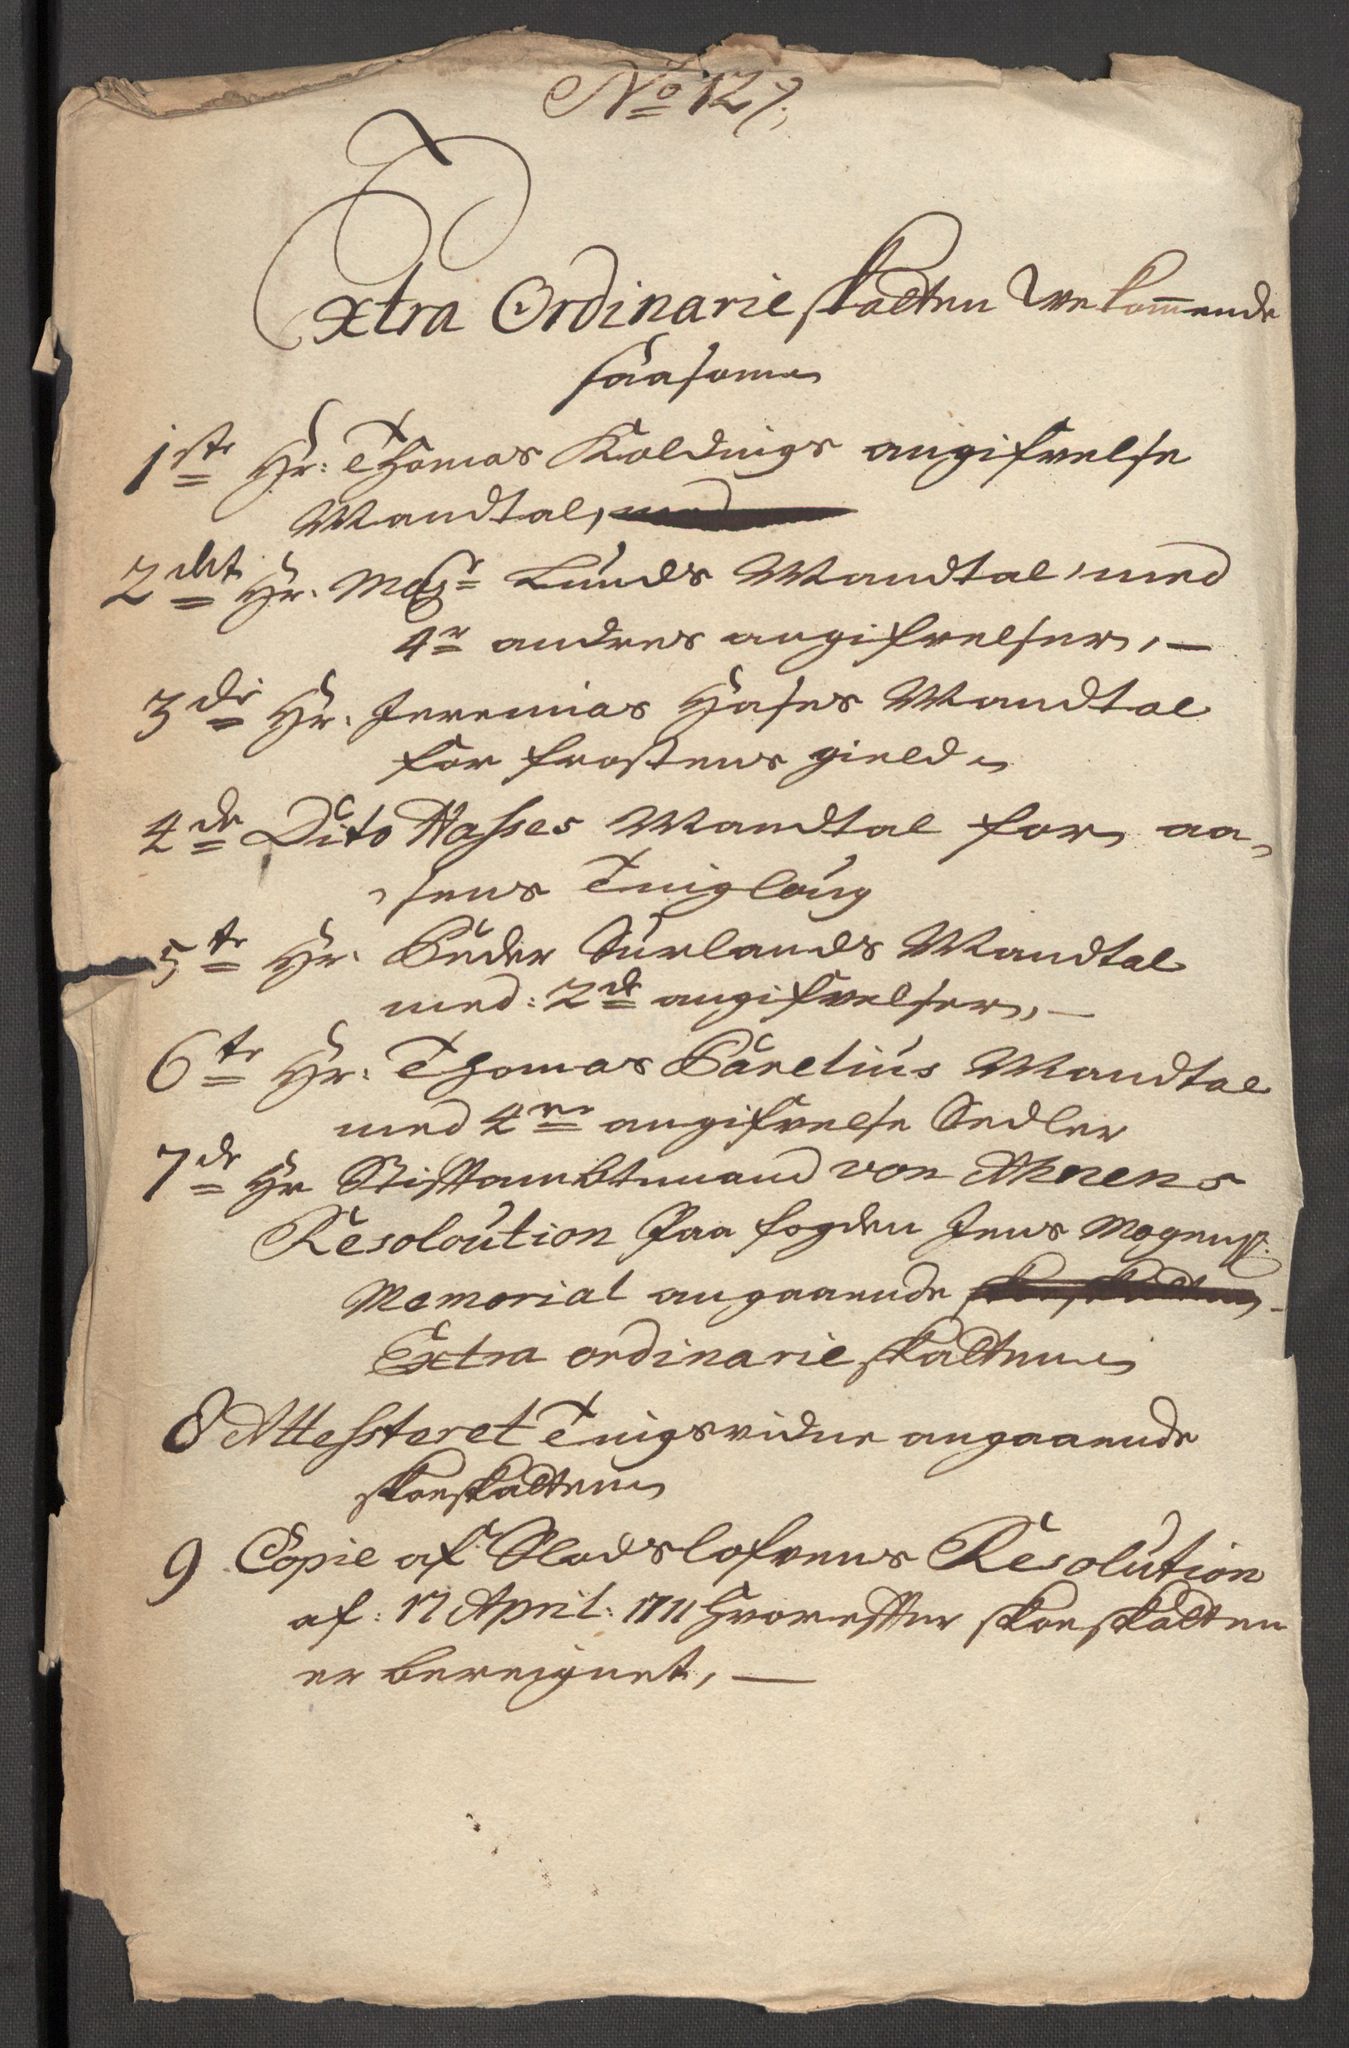 No 127,
Extra Ordinarie skatten Vekommende
saasom
1ste Hr: Thomas Koldings angifvelse
Mandtal, med
2det Hr. Magr Lunds Mandtal, med
4re andres angifvelser, —
3die Hr. Jeremias Hases Mandtal
for frostens gield
4de Dito Hasses Mandtal for aa-
sens Tinglaug
5te Hr. Peder Surlands Mandtal
med: 2de angifvelser, —
6te Hr. Thomas Parelius Mandtal
med 4re angifvelse Sedler
7de Hr Stiftambtmand von Ahnens
Resoloution Paa fogden Jens Mogenss:
Memorial angaaende skoeskatten
Extra ordinarie skatten
8 Attessteret Tingsvidne angaaende
skoeskatten
9 Copie af Slodslofvens Resolution
af: 17 April: 1711 hvorefter skoeskatten
er bereignet, —